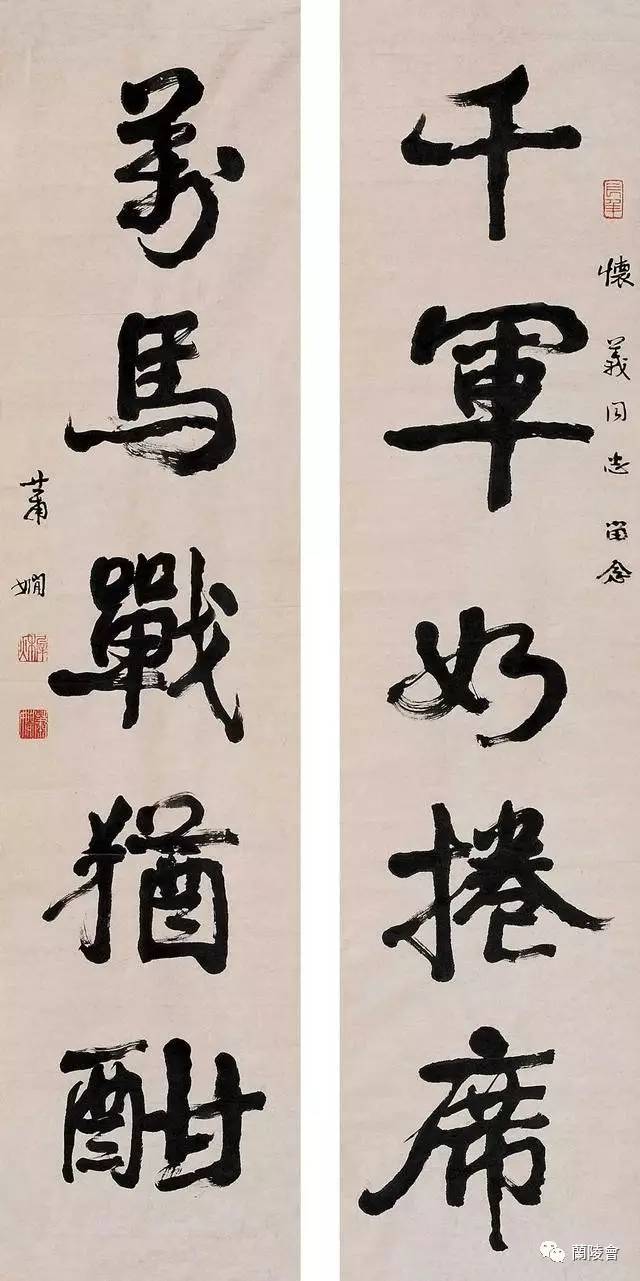 懷義同志留念
千軍如捲席
萬馬戰猶酣
蕭嫻
蘭陵會